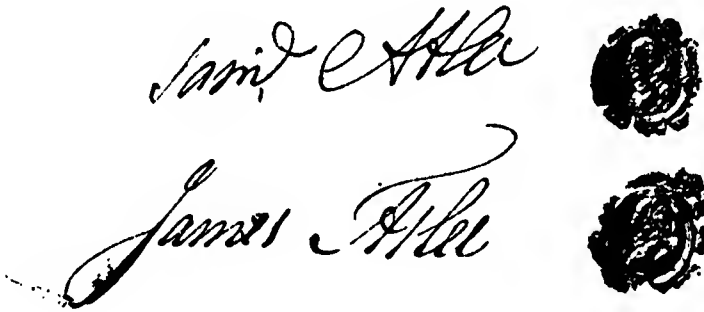 Saml Atlee
James Atlee